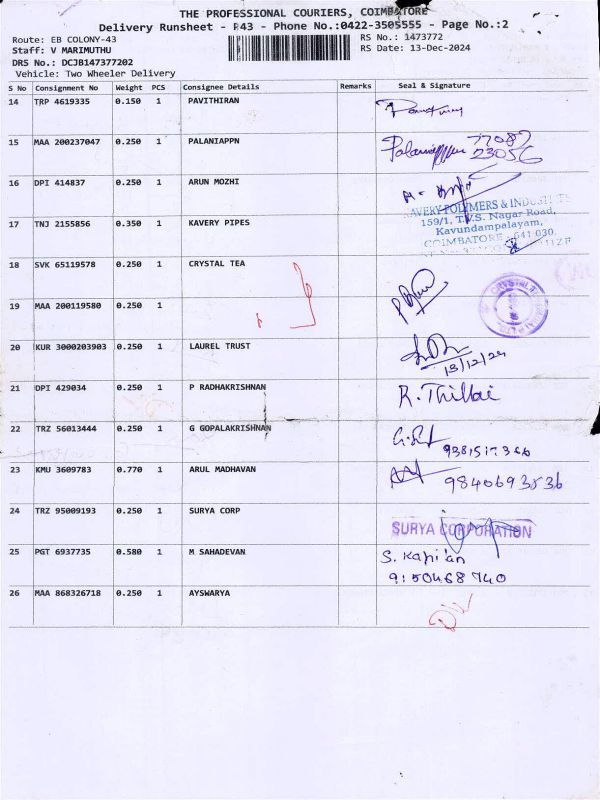 THE PROFESSIONAL COURIERS, COIMBATORE
Delivery Runsheet - P43 - Phone No.:0422-3505555 - Page No.:2
Route: EB COLONY-43 RS No.: 1473772
Staff: V MARIMUTHU RS Date: 13-Dec-2024
DRS No.: DCJB147377202
Vehicle: Two Wheeler Delivery
S No Consignment No Weight PCS Consignee Details Remarks Seal & Signature
14 TRP 4619335 0.150 1 PAVITHIRAN
15 MAA 200237047 0.250 1 PALANIAPPN Palaniappn 77087
23056
16 DPI 414837 0.250 1 ARUN MOZHI
KAVERY POLYMERS & INDUSTRIES
159/1, T.V.S. Nagar Road,
17 TNJ 2155856 0.350 1 KAVERY PIPES Kavundampalayam,
COIMBATORE - 641 030.
18 SVK 65119578 0.250 1 CRYSTAL TEA
19 MAA 200119580 0.250 1
20 KUR 3000203903 0.250 1 LAUREL TRUST
13/12/24
21 DPI 429034 0.250 1 P RADHAKRISHNAN R. Thillai
22 TRZ 56013444 0.250 1 G GOPALAKRISHNAN
9381517366
23 KMU 3609783 0.770 1 ARUL MADHAVAN 9840693536
24 TRZ 95009193 0.250 1 SURYA CORP
SURYA CORPORATION
25 PGT 6937735 0.580 1 M SAHADEVAN S. Kapilan
9150468740
26 MAA 868326718 0.250 1 AYSWARYA